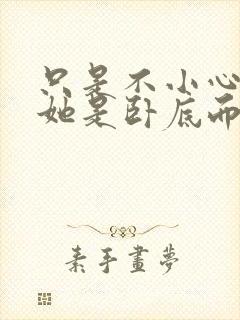 只是不小心
她是卧底而
素手畫夢